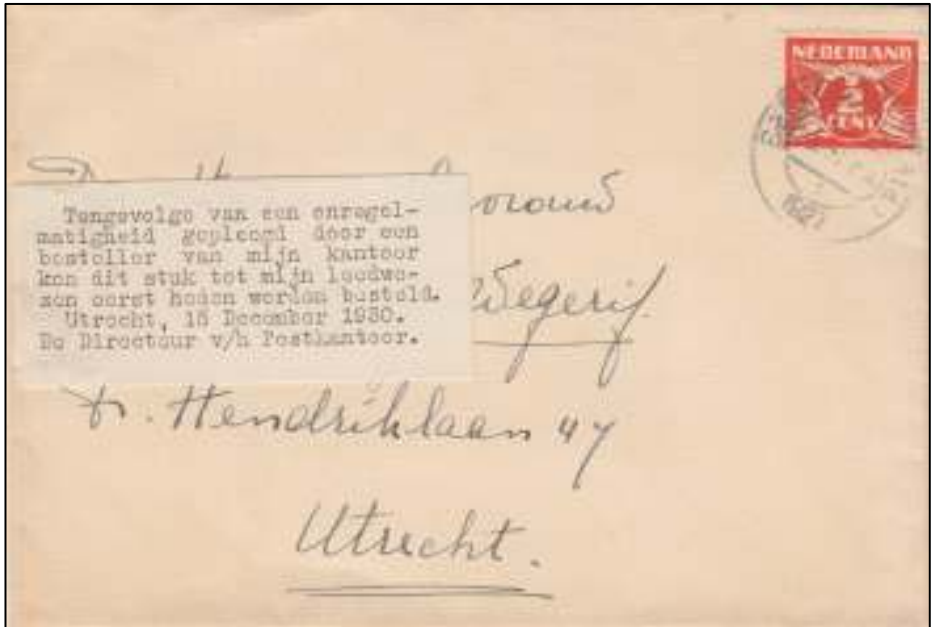 NEDERLAND
2
CENT
1927
Tengevolge van een onregel-
matigheid gepleegd door een
besteller van mijn kantoor
kon dit stuk tot mijn leedwe-
zen eerst heden worden besteld.
Utrecht, 15 December 1930.
De Directeur v/h Postkantoor.
Wegerif.
Pr. Hendriklaan 47
Utrecht.